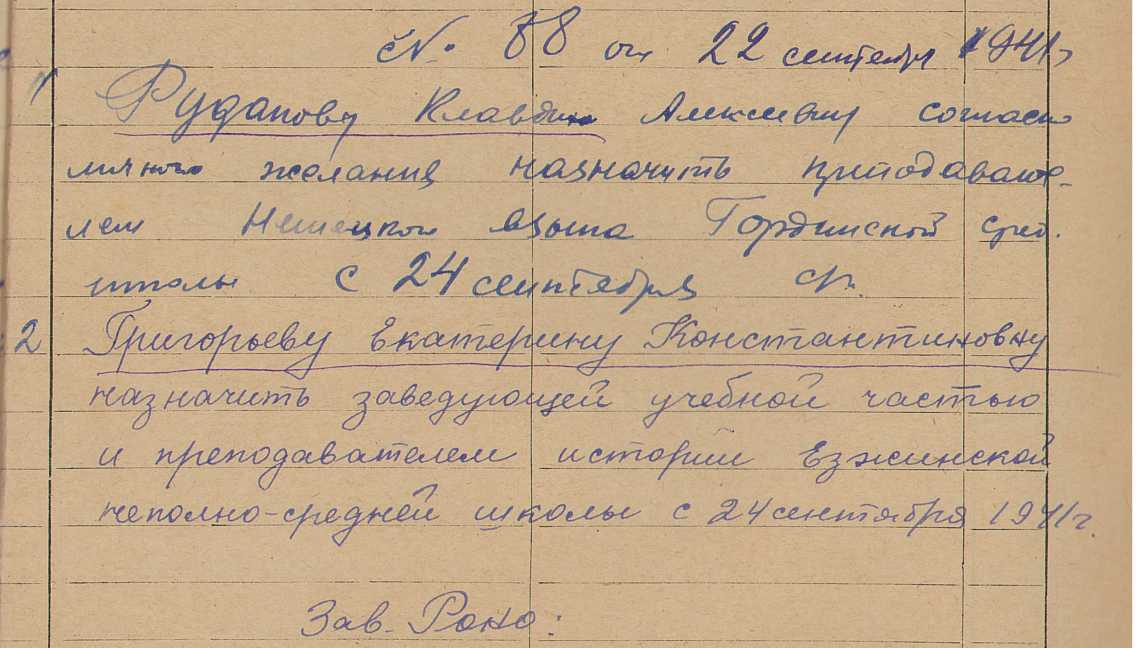 № 88 от 22 сентября 1941г
1 Рудакову Клавдию Алексеевну согласно
личного желания назначить преподавате-
лем Немецкого языка Гординской сред.
школы с 24 сентября
2 Григорьеву Екатерину Константиновну
назначить заведующей учебной частью
и преподавателем истории Езжинской
неполно-средней школы с 24 сентября 1941г.
Зав. Роно: